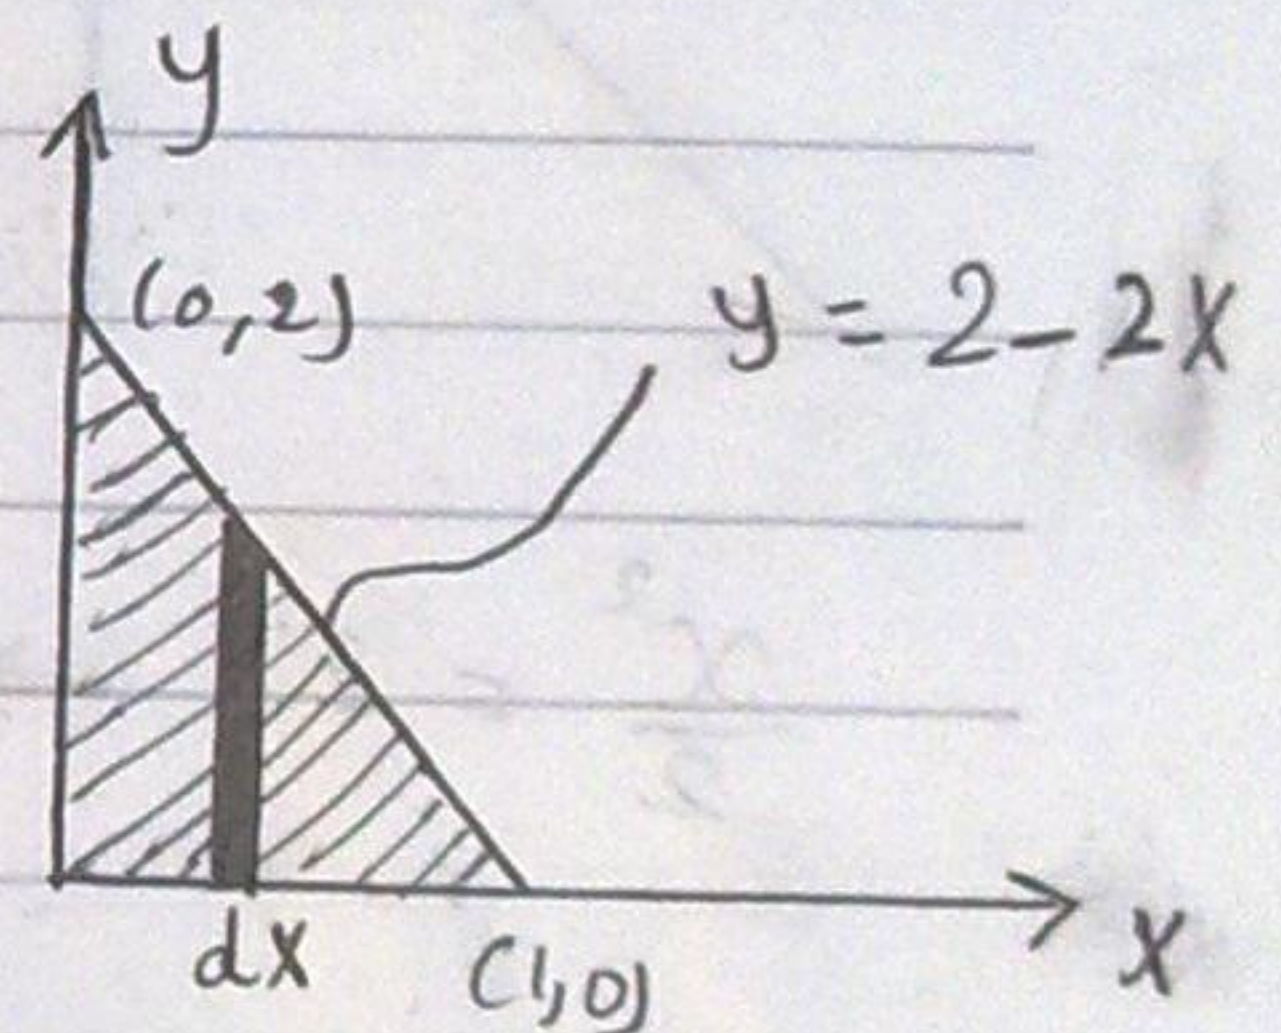 y
(0,2)
y = 2 - 2x
dx
(1,0)
x